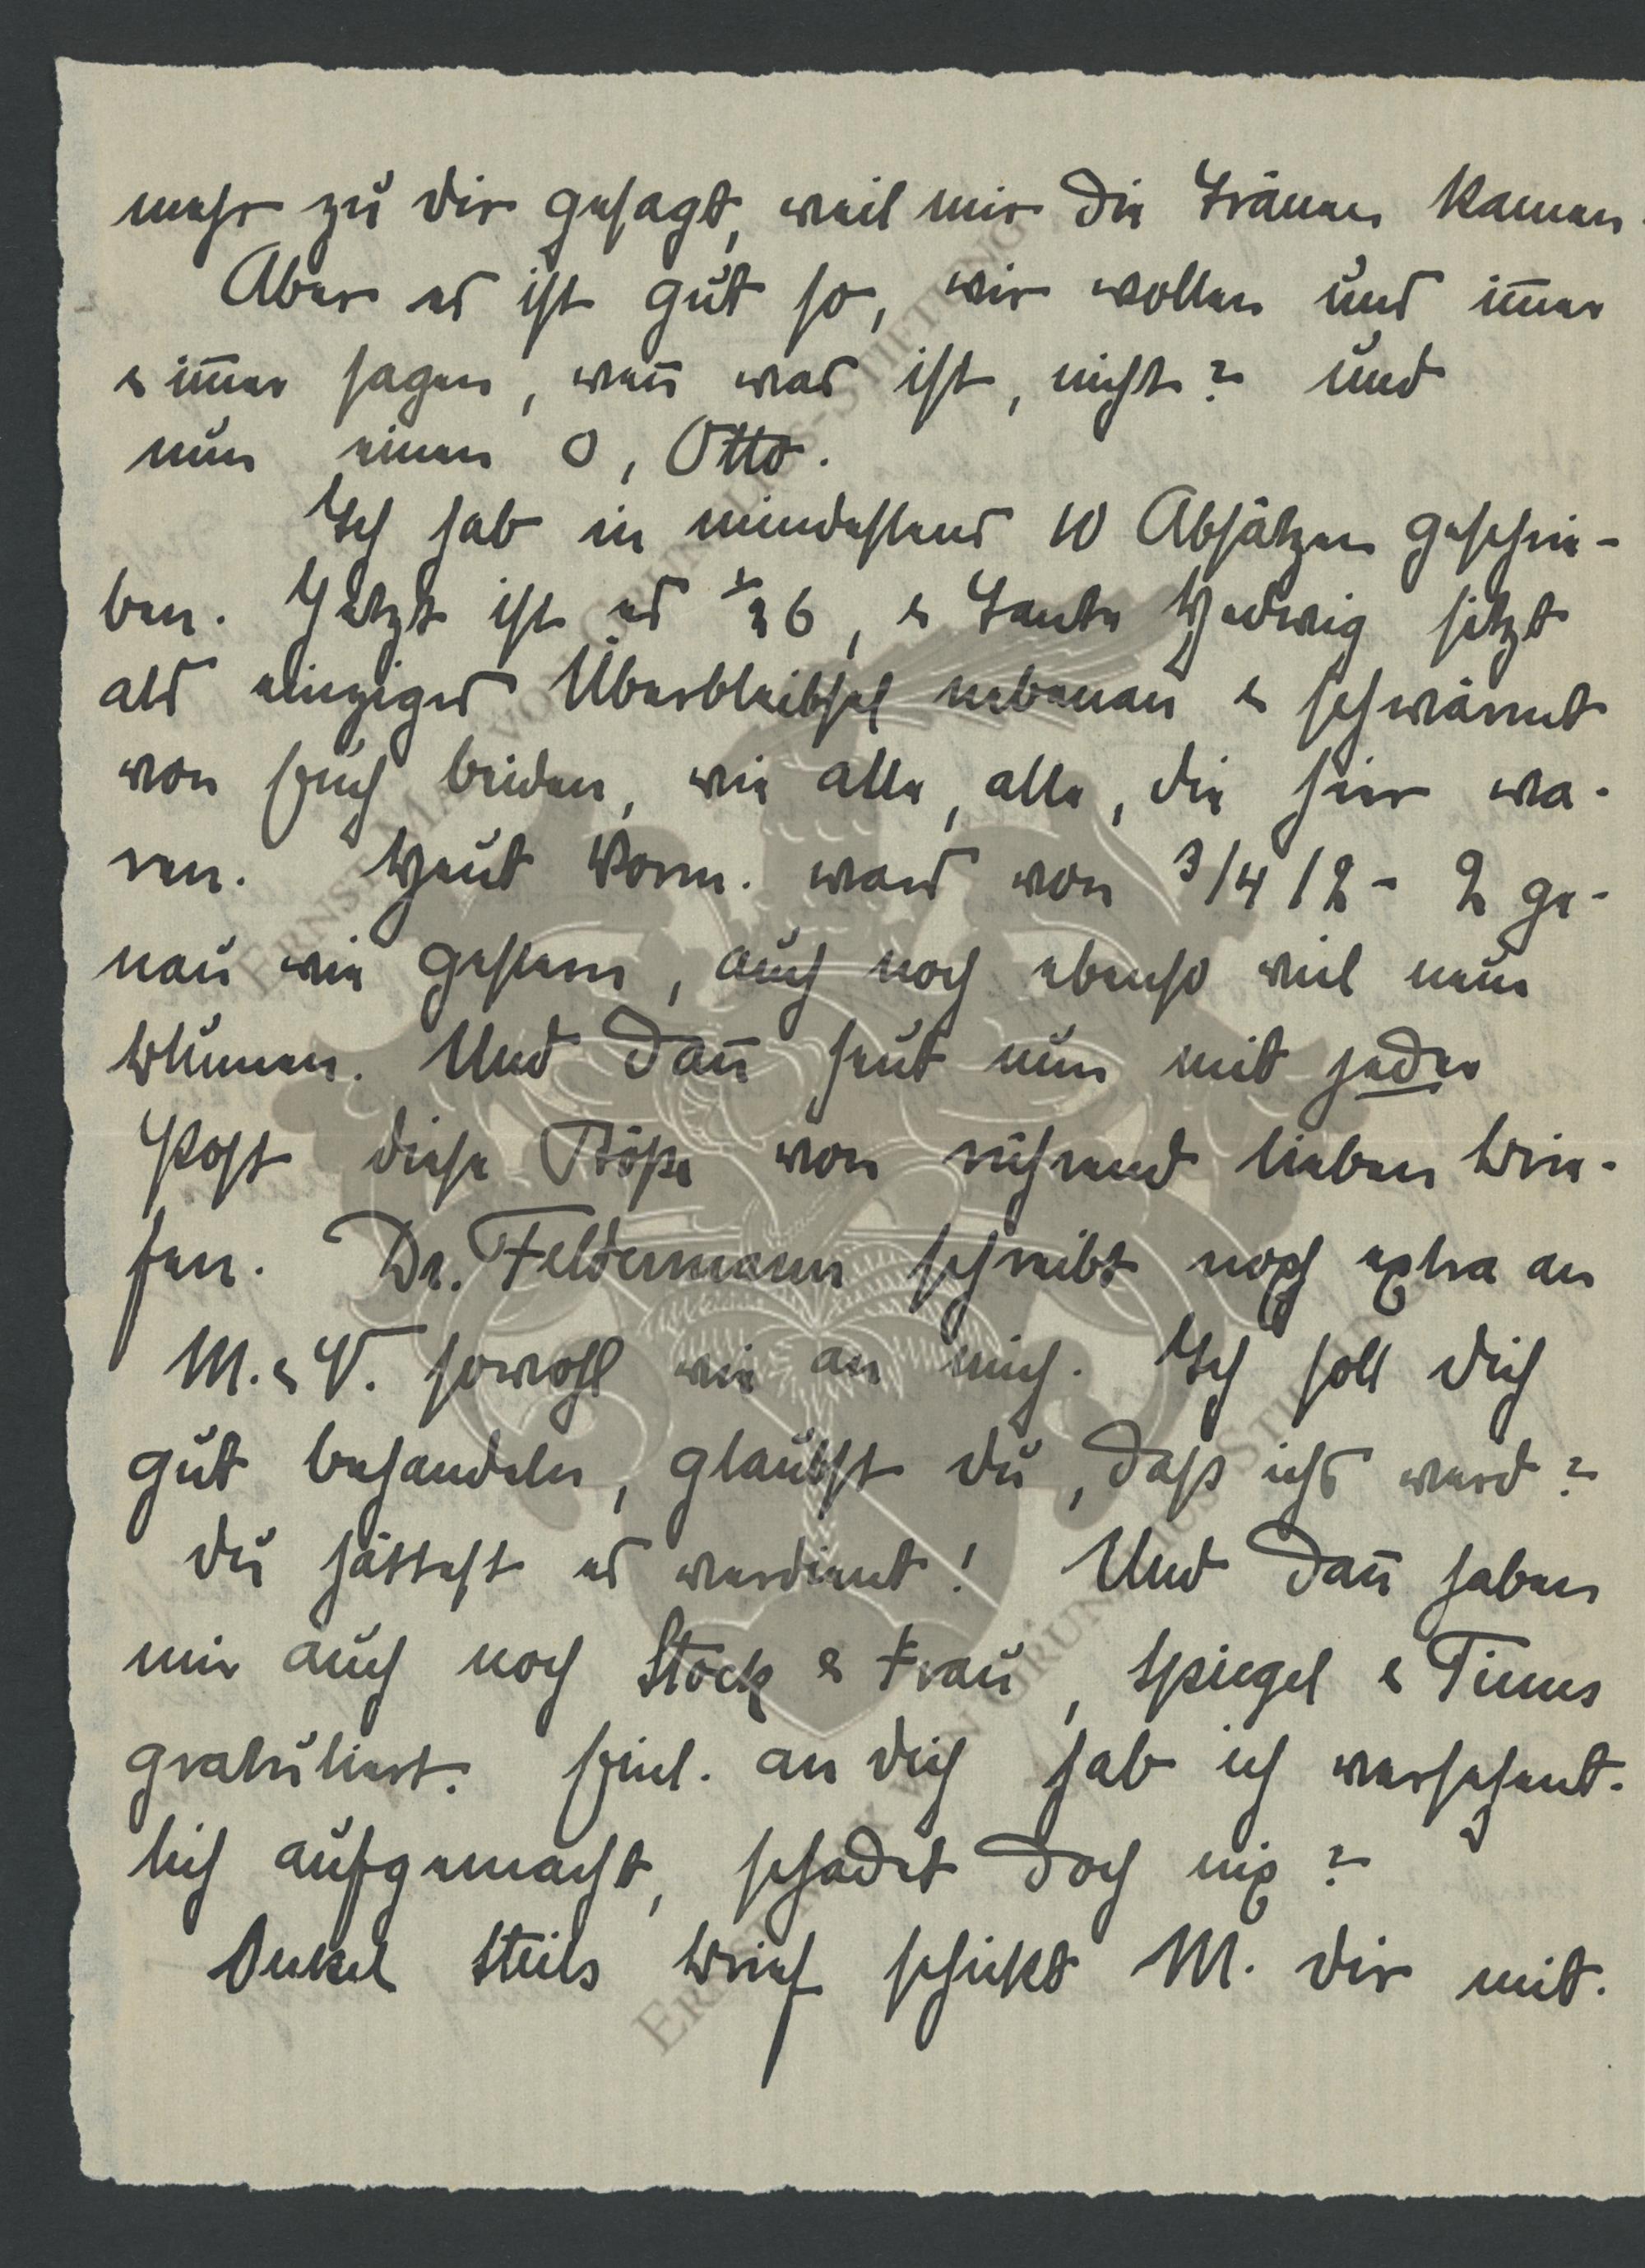 mehr zu dir gesagt, weil mir die Tränen kamen.
Aber es ist gut so, wir wollen uns im̄er
& im̄er sagen, wen̄ was ist, nicht? und
nun einen O, Otto.
Ich hab in mindestens 10 Absätzen geschrie-
ben. Jetzt ist es ½ 6, & Tante Hedwig sitzt
als einziges Überbleibsel nebenan & schwärmt
von Euch beiden, wie alle, alle, die hier wa-
ren. Heut Vorm. wars von 3/4 12 - 2 ge-
nau wie gestern, auch noch ebenso viel neue
Blumen. Und dan̄ heut nun mit jeder
Post diese Stöße von rührend lieben Brie-
fen. Dr. Feldermann schreibt noch extra an
M. & V. sowohl wie an mich. Ich soll dich
gut behandeln, glaubst du, daß ichs werd?
du hättest es verdient! Und dan̄ haben
mir auch noch Stock & Frau, Spiegel & Timms
gratuliert. Einl. an dich hab ich versehent-
lich aufgemacht, schadet doch nix?
Onkel Brief schickt M. dir mit.
ERNST MAX VON GRUNELIUS-STIFTUNG
ERNST MAX VON GRUNELIUS-STIFTUNG